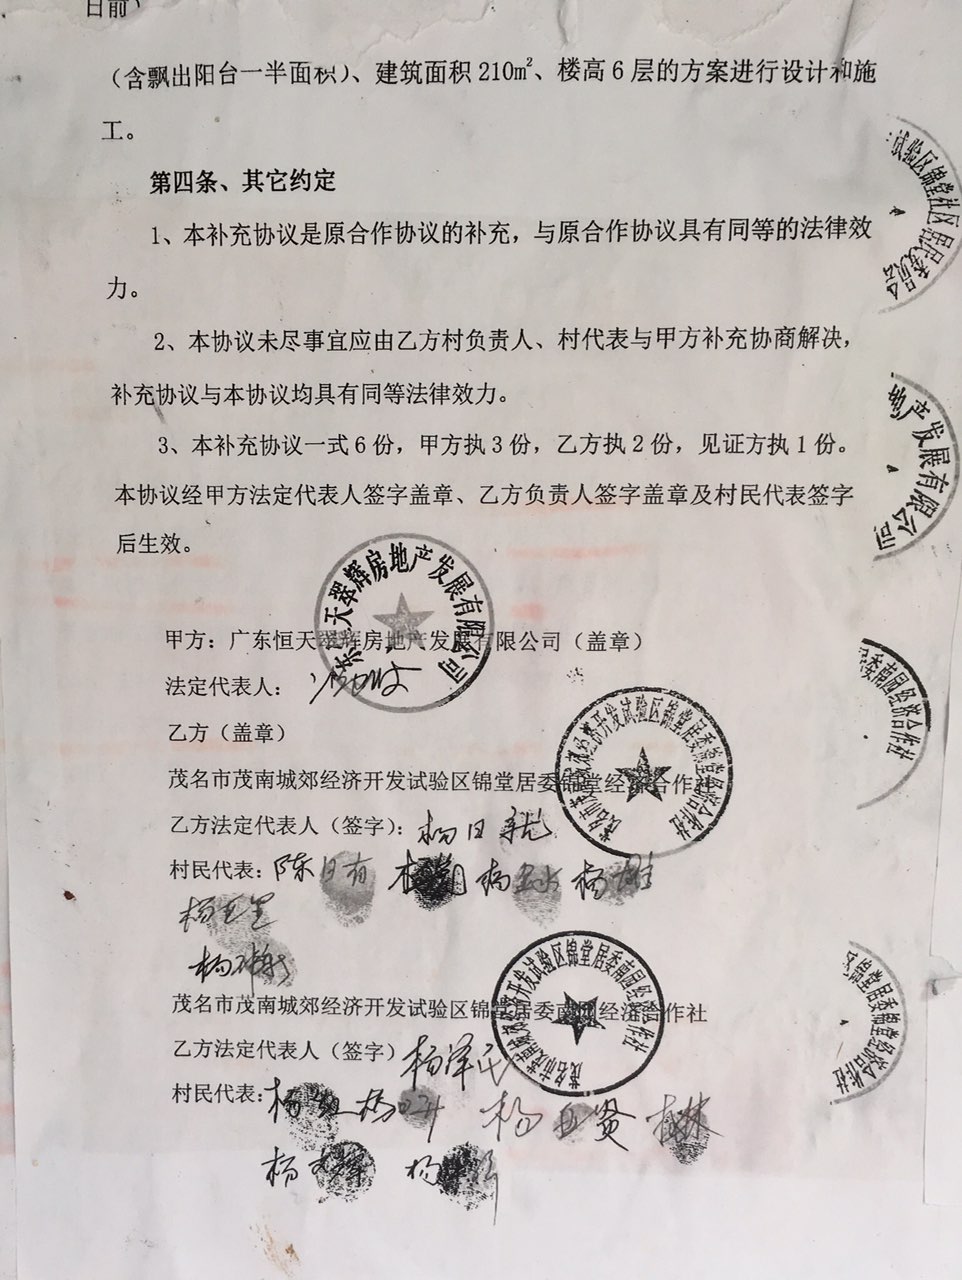 日前）
（含飘出阳台一半面积）、建筑面积210m²、楼高6层的方案进行设计和施
工。
第四条、其它约定
1、本补充协议是原合作协议的补充，与原合作协议具有同等的法律效
力。
2、本协议未尽事宜应由乙方村负责人、村代表与甲方补充协商解决，
补充协议与本协议均具有同等法律效力。
3、本补充协议一式6份，甲方执3份，乙方执2份，见证方执1份。
本协议经甲方法定代表人签字盖章、乙方负责人签字盖章及村民代表签字
后生效。
天翠辉房地产发展有限公司
甲方：广东恒天翠辉房地产发展有限公司（盖章）
法定代表人：
乙方（盖章）
茂名市茂南城郊经济开发试验区锦堂居委锦堂经济合作社
茂名市茂南城郊经济开发试验区锦堂居委锦堂经济合作社
乙方法定代表人（签字）：杨日
村民代表：陈日有 杨 杨
杨
杨
茂名市茂南城郊经济开发试验区锦堂居委南园经济合作社
茂名市茂南城郊经济开发试验区锦堂居委南园经济合作社
乙方法定代表人（签字）杨泽民
村民代表：杨 杨 杨 贤 林
杨 辉 杨
试验区锦堂社区居民委员会
产发展有限公司
委南园经济合作社
区锦堂居委锦堂经济合作社